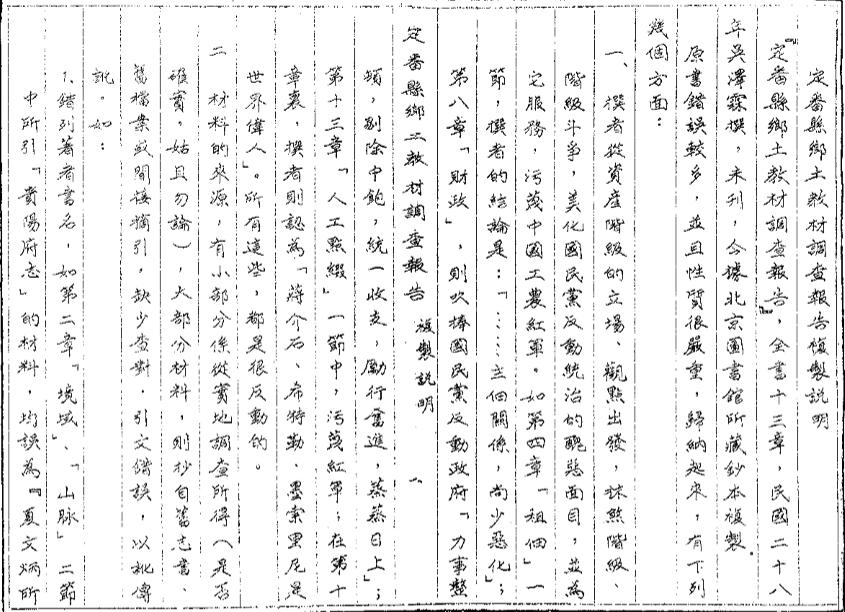 定番縣鄉土教材調查報告複製說明
『定番縣鄉土教材調查報告』，全書十三章，民國二十八
年吳澤霖撰，未刊，今據北京圖書館所藏鈔本複製。
原書錯誤較多，並且性質很嚴重，歸納起來，有下列
幾個方面：
一、撰者從資產階級的立場、觀點出發，抹煞階級、
階級斗爭，美化國民黨反動統治的醜惡面目，並為
它服務，污蔑中國工農紅軍。如第四章「租佃」一
節，撰者的結論是：「……主佃關係，尚少惡化」；
第八章「財政」，則吹捧國民黨反動政府「力事整
定番縣鄉土教材調查報告　複製說明　一
頓，剔除中飽，統一收支，勵行奮進，蒸蒸日上」；
第十三章「人工點綴」一節中，污蔑紅軍；在第十
章裏，撰者則認為「蔣介石、希特勒、墨索里尼是
世界偉人」。所有這些，都是很反動的。
二　材料的來源，有小部分係從實地調查所得（是否
確實，姑且勿論），大部分材料，則抄自舊志書、
舊檔案或間接摘引，缺少查對，引文錯誤，以訛傳
訛。如：
1、錯列著者書名，如第二章「境域」、「山脉」二節
中所引「貴陽府志」的材料，均誤為『夏文炳所